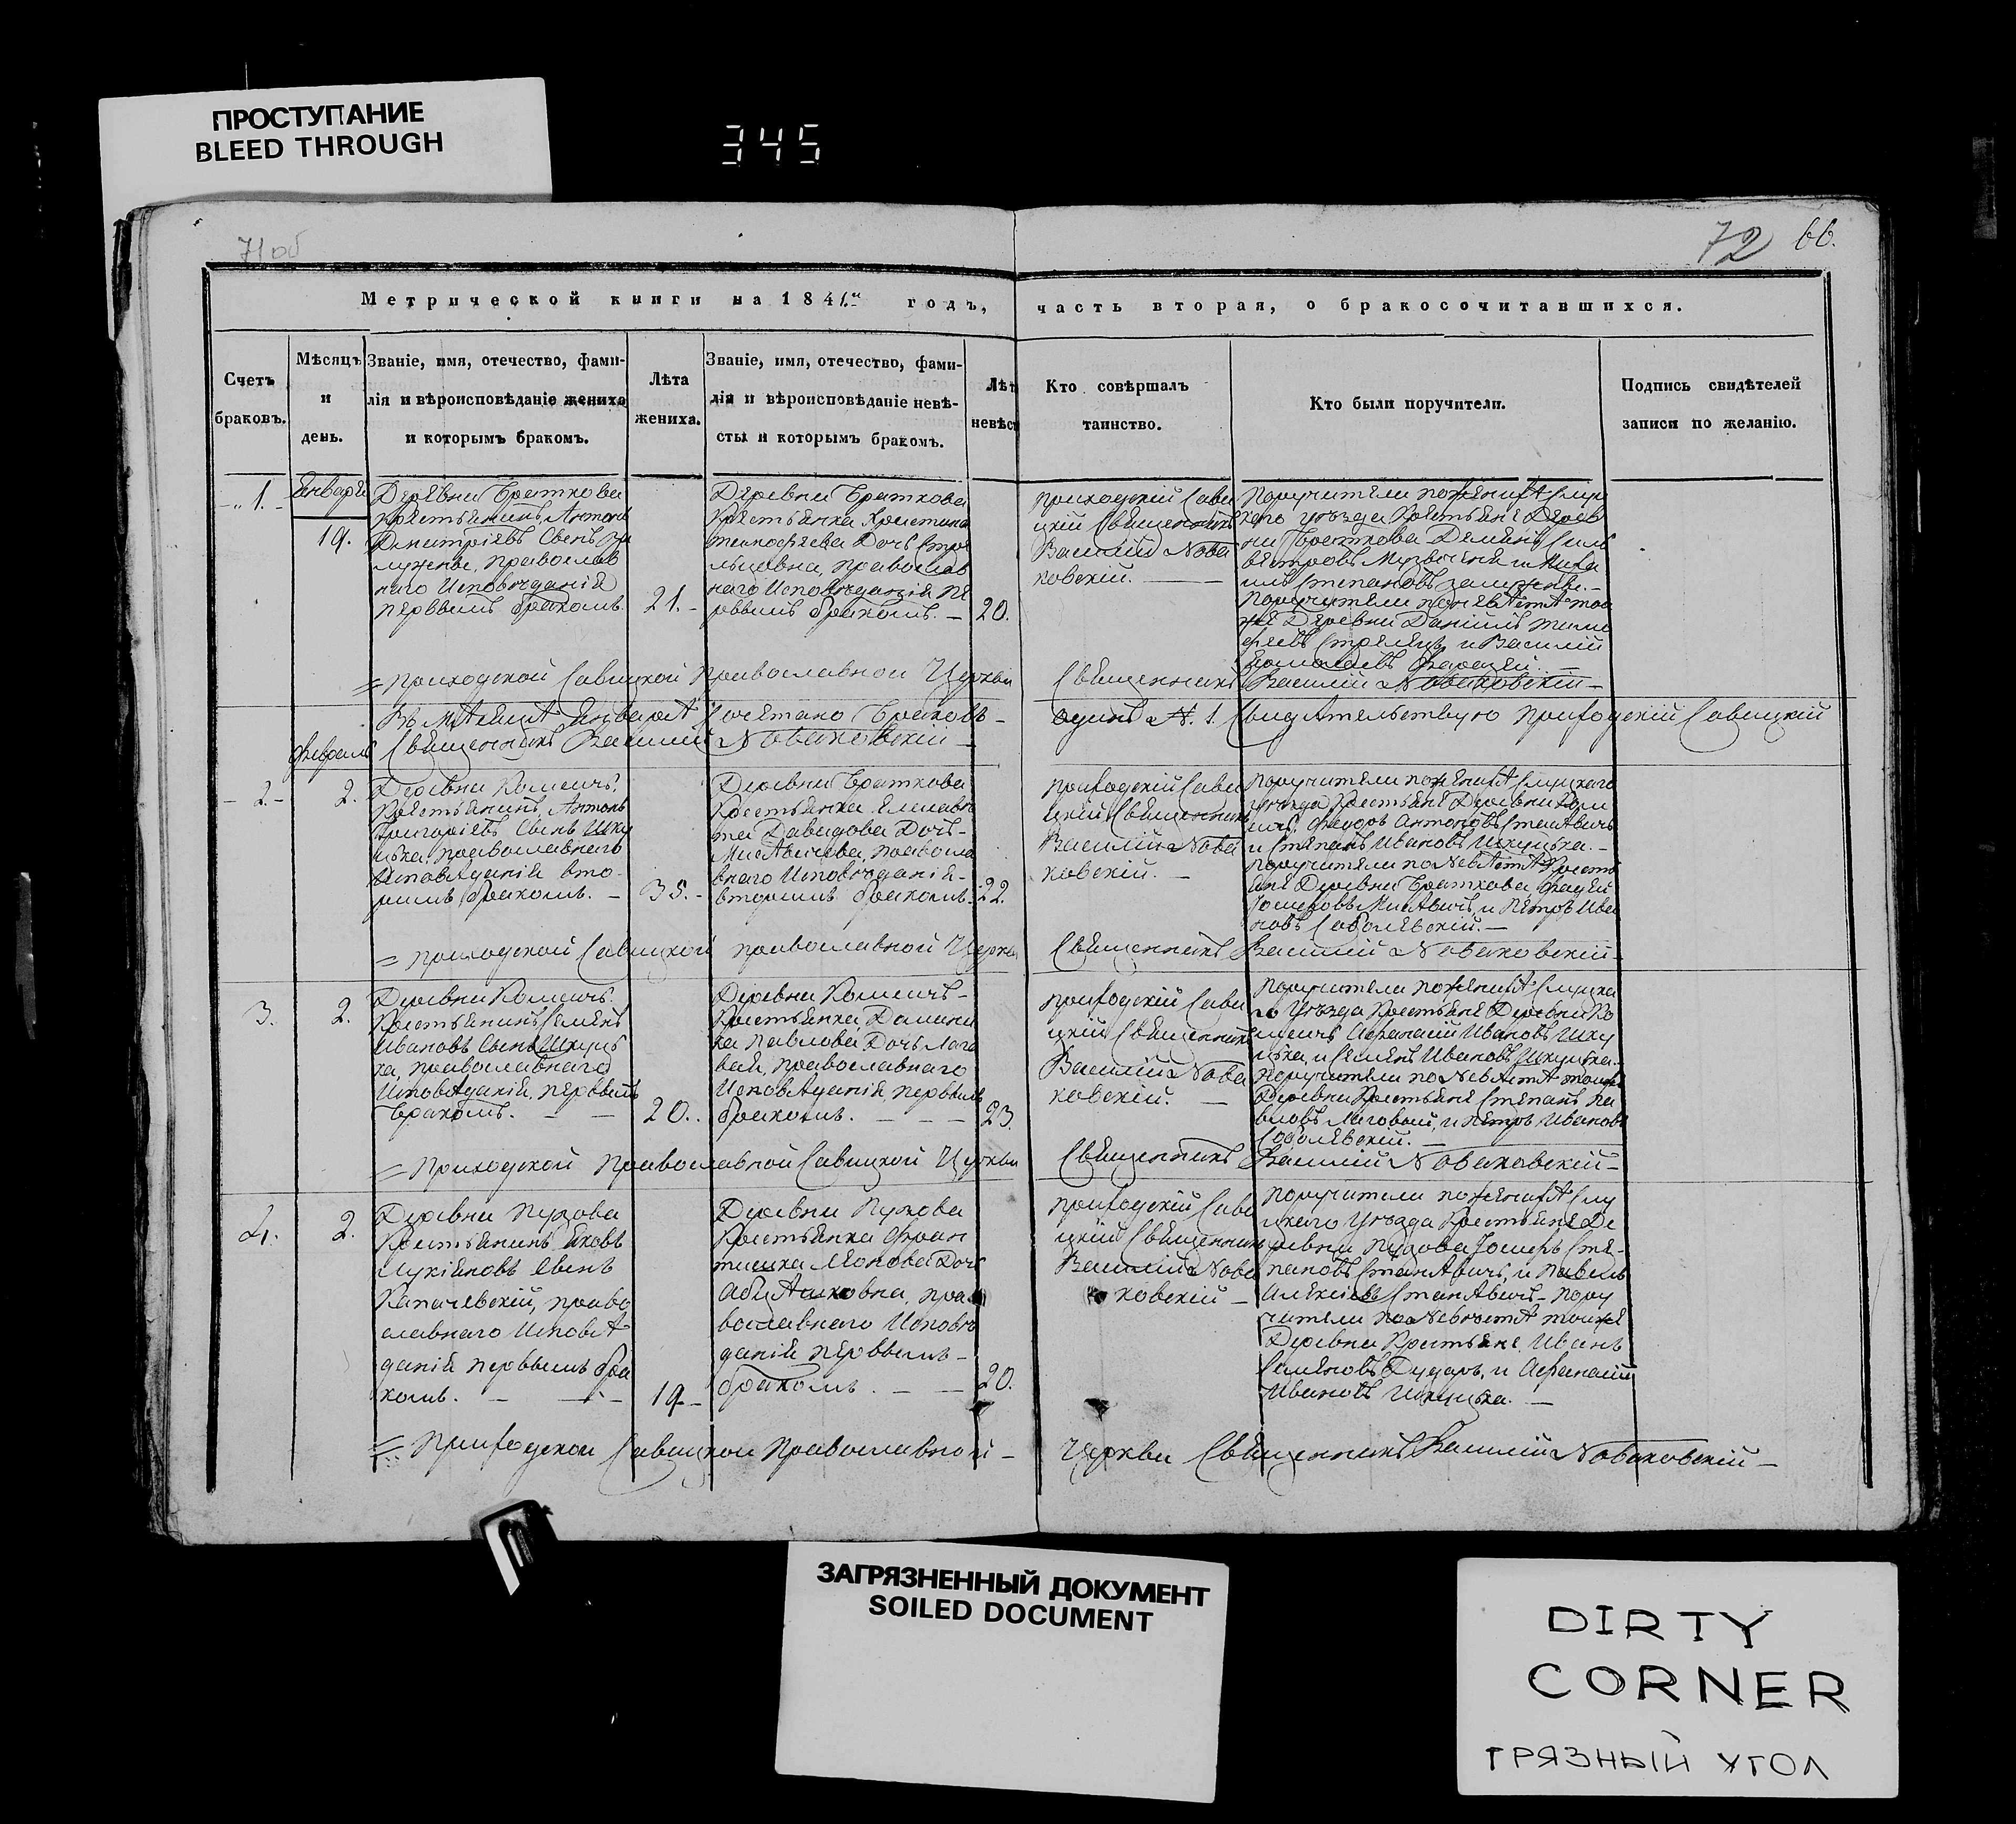 ПРОСТУПАНИЕ
BLEED THROUGH
345
71 об
72 66.
Метрической книги на 1841й годъ, часть вторая, о бракосочитавшихся.
Счетъ
браковъ.
Мѣсяцъ
и
день.
Званіе, имя, отечество, фами-
лія и вѣроисповѣданіе жениха
и которымъ бракомъ.
Лѣта
жениха.
Званіе, имя, отечество, фами-
лія и вѣроисповѣданіе невѣ-
сты и которымъ бракомъ.
Лѣт
невѣст
Кто совѣршалъ
таинство.
Кто были поручители.
Подпись свидѣтелей
записи по желанію.
1.
Января
19.
Деревни Браткова
Крестьянинъ Антонъ
Димитріевъ Сынъ За
лужный, православ
наго Исповѣданія
первымъ бракомъ.
21.
Деревни Браткова
Крестьянка Христина
Тимофеева Дочь Стре
льцовна, православ
наго Исповѣданія пе
рвымъ бракомъ. —
20.
приходскій Сави
цкій Священникъ
Василій Нова
ковскій. —
Поручители по женихѣ Слуц
каго уѣзда Крестьяне Дерев
ни Браткова
и Миха
илъ Степановъ
Поручители по невѣстѣ той
же Деревни Даніилъ Тимо
феевъ Стрелецъ и Василій
= приходской Савицкой Православной Церкви Священникъ Василій Новаковскій —
Въ мѣсяцѣ Январѣ Сочетано Браковъ — одинъ N. 1. Свидѣтельствую Приходскій Савицкій
Священникъ Василій Новаковскій —
Февраль
2.
2.
Деревни
Крестьянинъ Антонъ
Григоріевъ Сынъ Шку
цька, православнаго
Исповѣданія вто-
рымъ бракомъ. —
35.
Деревни Браткова
Крестьянка Елисаве
та Давидова Дочь —
правосла
внаго Исповѣданія —
вторымъ бракомъ.
22.
приходскій Сави
цкій Священникъ
Василій Нова
ковскій. —
Поручители по женихѣ Слуцкаго
уѣзда Крестьяне Деревни
Феодоръ Антоновъ
и Степанъ Ивановъ Шкуцька. —
Поручители по Невѣстѣ Кресть
яне Деревни Браткова Фадей
и Петръ Ива
новъ Соболевскій. —
= приходской Савицкой православной Церкви Священникъ Василій Новаковскій —
3.
2.
Деревни
Крестьянинъ Семенъ
Ивановъ Сынъ Шкуць
ка, православнаго
Исповѣданія, первымъ
Бракомъ. —
20.
Деревни
Крестьянка Домини
ка Павлова Дочь Лаго
вая, православнаго
Исповѣданія первымъ
бракомъ. —
23.
приходскій Сави
цкій Священникъ
Василій Нова
ковскій. —
Поручители по женихѣ Слуцка
го Уѣзда Крестьяне Деревни
Афанасій Ивановъ Шку
цька, и Семенъ Ивановъ Шкуцька. —
Поручители по Невѣстѣ тойже
Деревни Крестьяне Степанъ Па
вловъ Лаговый, и Петръ Ивановъ
Соболевскій. —
= Приходской Православной Савицкой Церкви Священникъ Василій Новаковскій —
4.
2.
Деревни Пузова
Крестьянинъ Яковъ
Лукіяновъ Сынъ
Капачевскій, право
славнаго Исповѣ
данія первымъ бра
комъ. —
19 —
Деревни Пузова
Крестьянка Фран
тишка Дочь
пра
вославнаго Исповѣ
данія первымъ —
бракомъ. —
20.
Приходскій Сави
цкій Священникъ
Василій Нова
ковскій —
Поручители по женихѣ Слу
цкаго Уѣзда Крестьяне Де
ревни Пузова Іосифъ Сте-
пановъ и Павелъ
Алексіевъ Пору
чители по Невѣстѣ тойже
Деревни Крестьяне Иванъ
Семеновъ Дударь, и Афанасій
Ивановъ Шкуцька. —
= Приходской Савицкой Православной — Церкви Священникъ Василій Новаковскій —
ЗАГРЯЗНЕННЫЙ ДОКУМЕНТ
SOILED DOCUMENT
DIRTY
CORNER
ГРЯЗНЫЙ УГОЛ